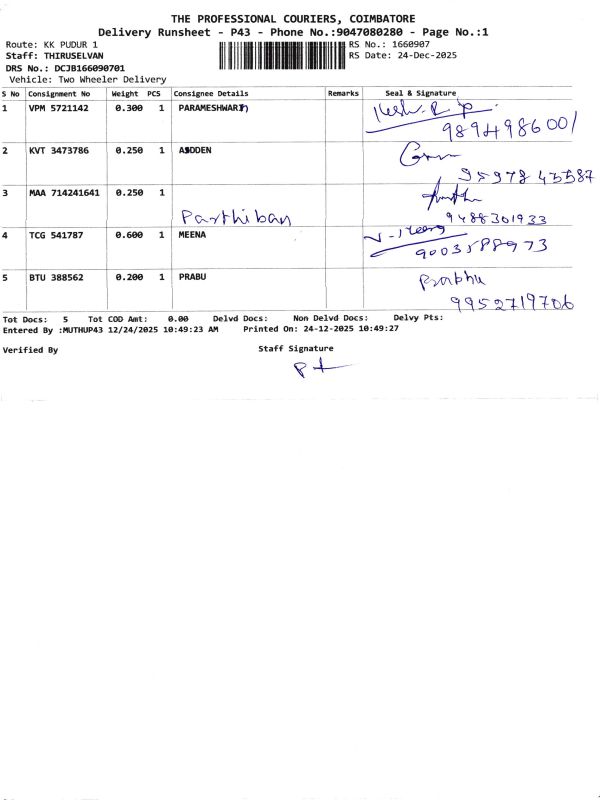 THE PROFESSIONAL COURIERS, COIMBATORE
Delivery Runsheet - P43 - Phone No.:9047080280 - Page No.:1
Route: KK PUDUR 1 RS No.: 1660907
Staff: THIRUSELVAN RS Date: 24-Dec-2025
DRS No.: DCJB166090701
Vehicle: Two Wheeler Delivery
S No Consignment No Weight PCS Consignee Details Remarks Seal & Signature
1 VPM 5721142 0.300 1 PARAMESHWARI
9894986001
2 KVT 3473786 0.250 1
95978 43587
3 MAA 714241641 0.250 1
Parthiban 9488301933
4 TCG 541787 0.600 1 MEENA
9003588973
5 BTU 388562 0.200 1 PRABU Prabhu
9952719706
Tot Docs: 5 Tot COD Amt: 0.00 Delvd Docs: Non Delvd Docs: Delvy Pts:
Entered By :MUTHUP43 12/24/2025 10:49:23 AM Printed On: 24-12-2025 10:49:27
Verified By Staff Signature